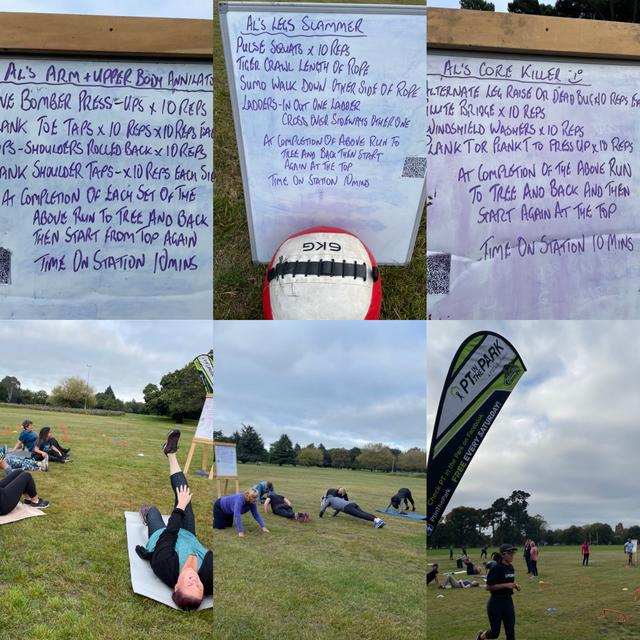 AL'S ARM + UPPER BODY ANNILAT
VE BOMBER PRESS-UPS x 10 REPS
ANK TOE TAPS x 10 REPS x 10 REPS EA
PS-SHOULDERS ROLLED BACK x 10 REPS
ANK SHOULDER TAPS-x 10 REPS EACH SI
AT COMPLETION OF EACH SET OF THE
ABOVE RUN TO TREE AND BACK
THEN START FROM TOP AGAIN
TIME ON STATION 10 MINS
AL'S LEGS SLAMMER
PULSE SQUATS x 10 REPS
TIGER CRAWL LENGTH OF ROPE
SUMO WALK DOWN OTHER SIDE OF ROPE
LADDERS-IN OUT ONE LADDER
CROSS OVER SIDEWAYS OTHER ONE
AT COMPLETION OF ABOVE RUN TO
TREE AND BACK THEN START
AGAIN AT THE TOP
TIME ON STATION 10 MINS
6KG
AL'S CORE KILLER
ALTERNATE LEG RAISE OR DEAD BUG x 10 REPS EA
LUTE BRIDGE x 10 REPS
WINDSHIELD WASHERS x 10 REPS
PLANK TOR PLANK TO PRESS UP x 10 REPS
AT COMPLETION OF THE ABOVE RUN
TO TREE AND BACK AND THEN
START AGAIN AT THE TOP
TIME ON STATION 10 MINS
PT IN THE PARK
FREE EVERY SATURDAY!